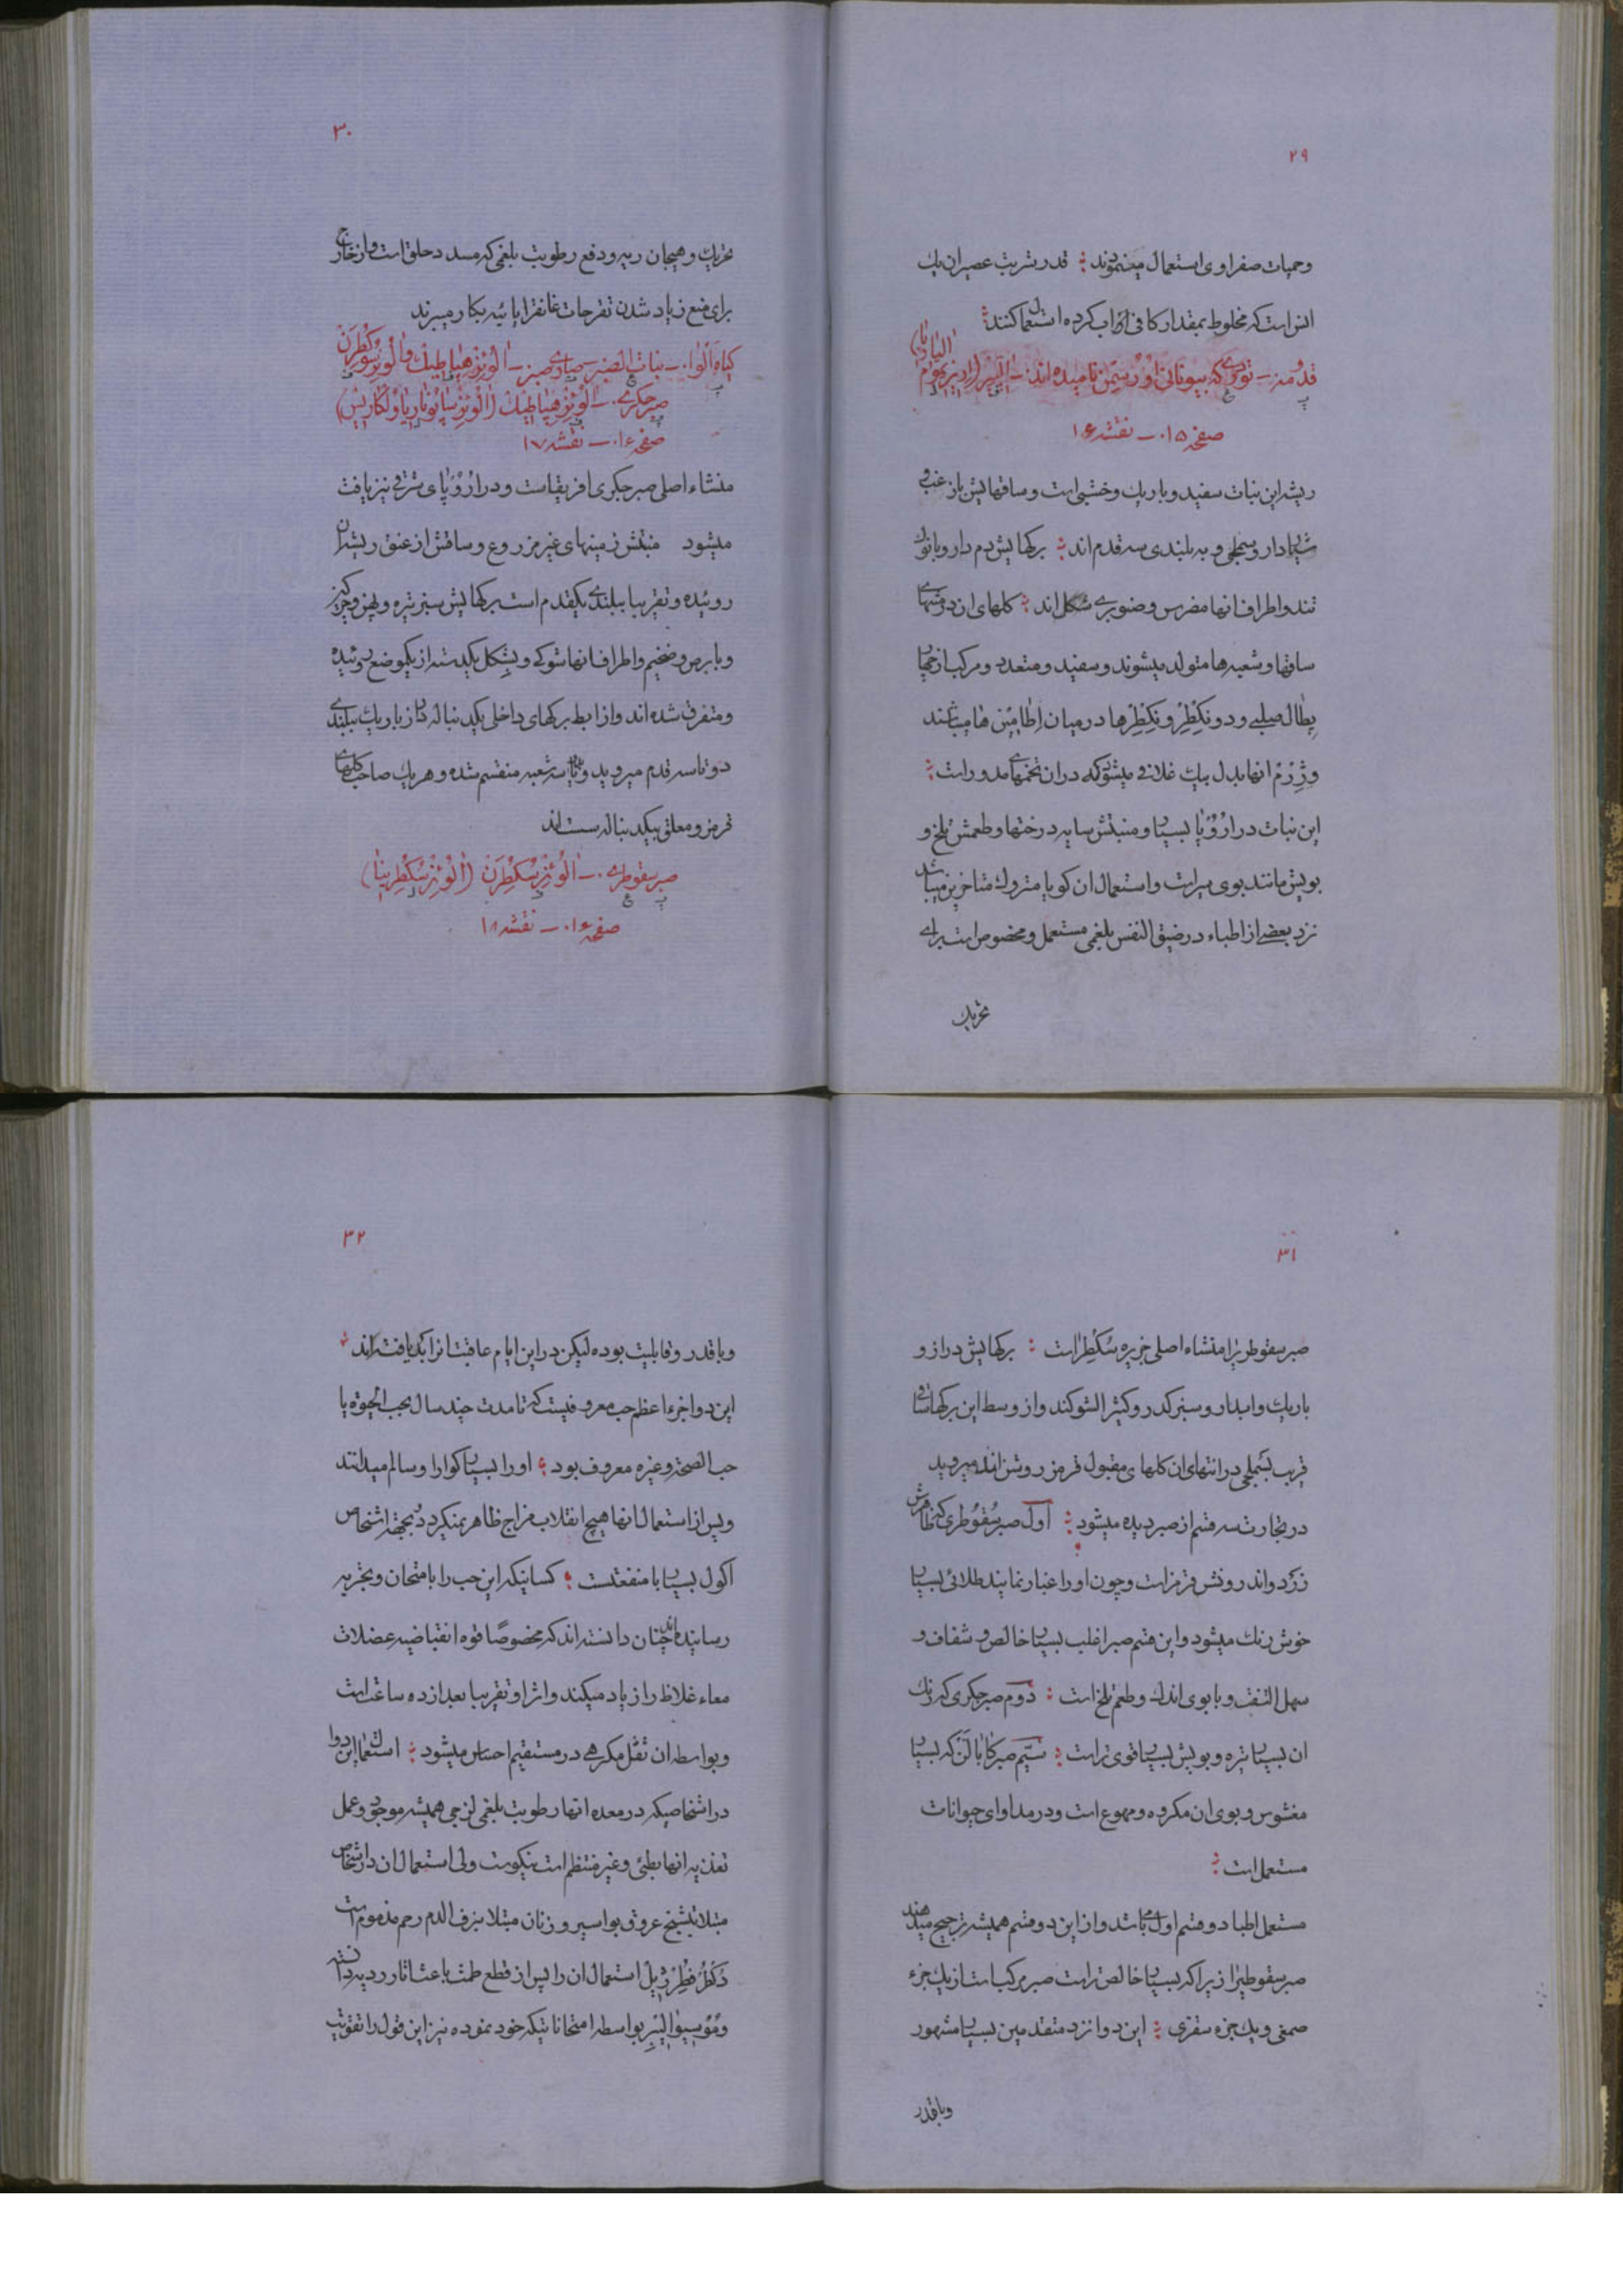 ۲۹
وحمیات صفراوی استعمال مینمودند قدر شربت عصیر ان یک
انس است که مخلوط بمقدار کافی از اب کرده استعمال کنند
قدومه ـ تودری که بیونانی
صفحه ۱۵ ـ نقشه ۱۶
ریشه این نبات سفید و باریک و خشبی است و ساقهایش باز غبی
شیاردار و سطحی و به بلندی سه قدم اند برکهایش دم دار و بانوک
تند و اطراف انها مضرس و صنوبری شکل اند کلهای ان در منتهای
ساقها و شعبه ها متولد میشوند و سفید و متعدد و مرکب از چهار
پطال صلیبی و دو نکطر و نکطرها در میان اطامین ها میباشند
وژرم انها بدل بیک غلافی میشود که در ان تخمهای مدور است
این نبات در اروپا بسیار و منبتش سایه درختها و طعمش تلخ و
بویش مانند بوی سیر است و استعمال ان کویا متروک متاخرین میباشد
نزد بعضی از اطباء در ضیق النفس بلغمی مستعمل و مخصوص است برای
تحریک
۳۰
تحریک و هیجان ریه و دفع رطوبت بلغمی که مسد در حلق است و از خارج
برای منع زیاد شدن تقرحات غانقرایائیه بکار میبرند
کیاه الوا ـ نبات الصبر ـ
صبر جکری ـ
صفحه ۱۶ ـ نقشه ۱۷
منشاء اصلی صبر جکری افریقاست و در اروپای شرقی نیز یافت
میشود منبتش زمینهای غیر مزروع و ساقش از عنق ریشه ان
روئیده و تقریبا ببلندی یکقدم است برکهایش سبز تیره و پهن و
و ضخیم و اطراف انها شوکی و بشکل یکدسته از یکموضع روئیده
و متفرق شده اند و از ابط برکهای داخلی یکدنباله دراز باریک ببلندی
دو تا سه قدم میروید و بدو تا سه شعبه منقسم شده و هر یک صاحب کلهای
قرمز و معلق بیکدنباله سست اند
صبر سقوطری ـ الوئز سکطرن (الوئز سکطرینا)
صفحه ۱۶ ـ نقشه ۱۸
۳۱
صبر سقوطری را منشاء اصلی جزیره سکطرا است برکهایش دراز و
باریک و ابدار و سبز کدر و کثیر الشوکند و از وسط این برکها ساقی
قریب بکملجی در انتهای ان کلهای مقبول قرمز روشن اند میروید
در تجارت سه قسم از صبر دیده میشود اول صبر سقوطری که ظاهرش
زرد و اندرونش قرمز است و چون او را غبار نمایند طلائی بسیار
خوش رنک میشود و این قسم صبر اغلب بسیار خالص و شفاف و
سهل التفتت و با بوی اندک و طعم تلخ است دوم صبر جکری که رنک
ان بسیار تیره و بویش بسیار قوی تر است سیم صبر کابالن که بسیار
مغشوش و بوی ان مکروه و مهوع است و در مداوای حیوانات
مستعمل است
مستعمل اطبا دو قسم اول میباشد و از این دو قسم همیشه ترجیح میدهند
صبر سقوطری را زیرا که بسیار خالص تر است صبر مرکب است از یک جزء
صمغی و یک جزء سقزی این دوا نزد متقدمین بسیار مشهور
و با قدر
۳۲
و با قدر و قابلیت بوده لیکن در این ایام عاقبت انرا بد یافته اند
این دوا جزء اعظم حب معروفیست که تا مدت چند سال بحب الحیوة یا
حب الصحة و غیره معروف بود او را بسیار کوارا و سالم میدانند
و پس از استعمال انها هیچ انقلاب مزاج ظاهر نمیکردد و بجهة اشخاص
اکول بسیار با منفعتست کسانیکه این حب را بامتحان و تجربه
رسانیده اند چنان دانسته اند که مخصوصًا قوه انقباضیه عضلات
معاء غلاظ را زیاد میکنند و اثر او تقریبا بعد از ده ساعت است
و بواسطه ان ثقل مکرهی در مستقیم احساس میشود استعمال این دوا
در اشخاصیکه در معده انها رطوبت بلغمی لزجی همیشه موجود و عمل
تغذیه انها بطئی و غیر منتظم است نیکوست ولی استعمال ان در اشخاص
مبتلا بتشنج عروق بواسیر و زنان مبتلا بنزف الدم رحم مذموم است
دکطر فطرژیل استعمال ان را پس از قطع طمث باعث اثار ردیه دانسته
و موسیو الیبر بواسطه امتحاناتیکه خود نموده نیز این قول را تقویت